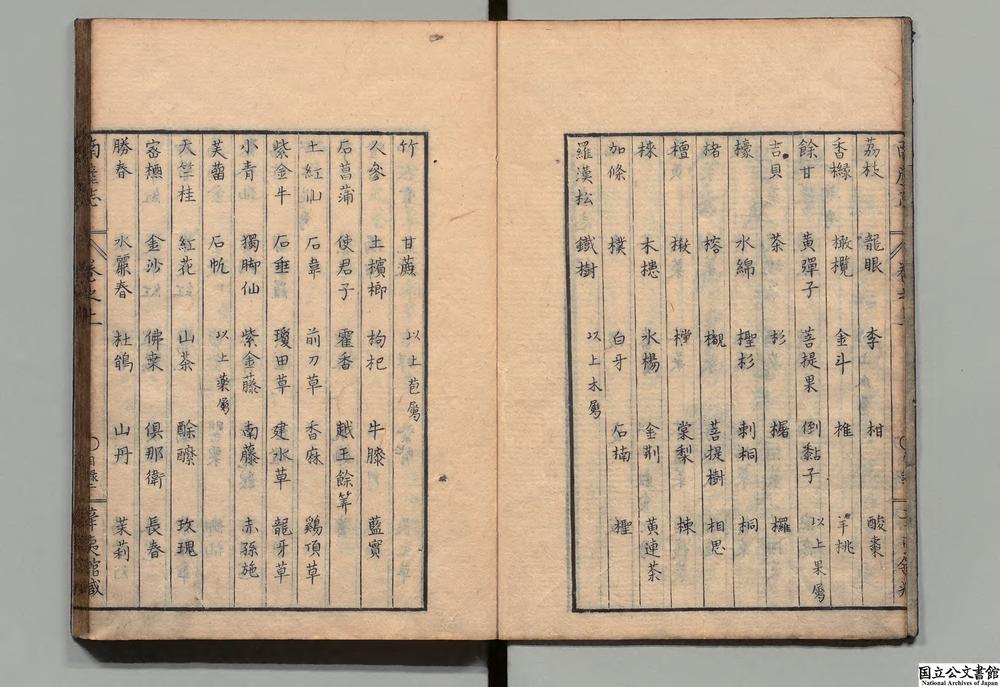 荔枝 龍眼 李 柑 酸棗
香櫞 橄欖 金斗 椎 羊挑
餘甘 黄彈子 菩提果 倒黏子 以上果屬
吉貝 茶 杉 椐 欏
檺 水綿 檉杉 刺桐 桐
楮 榕 櫬 菩提樹 相思
檀 橄 樘 棠梨 楝
梾 木槵 水楊 金荆 黄連茶
加條 樸 白牙 石楠 檉
羅漢松 鐵樹 以上木屬
竹 甘蔗 以上苞屬
人參 土檳榔 枸杞 牛膝 藍實
石菖蒲 使君子 霍香 越王餘筭
土紅仙 石韋 前刀草 香㾗 鷄頂草
紫金牛 石垂 瓊田草 建水草 龍牙草
小青 獨脚仙 紫金藤 南藤 赤孫施
芙蕾 石帆 以上藥屬
天竺桂 紅花 山茶 酴醾 玫瑰
金沙 佛桒 俱那衛 長春
勝春 水麗春 杜鵑 山丹 茉莉
南産志 卷之上 目録 華夷館藏
国立公文書館
National Archives of Japan